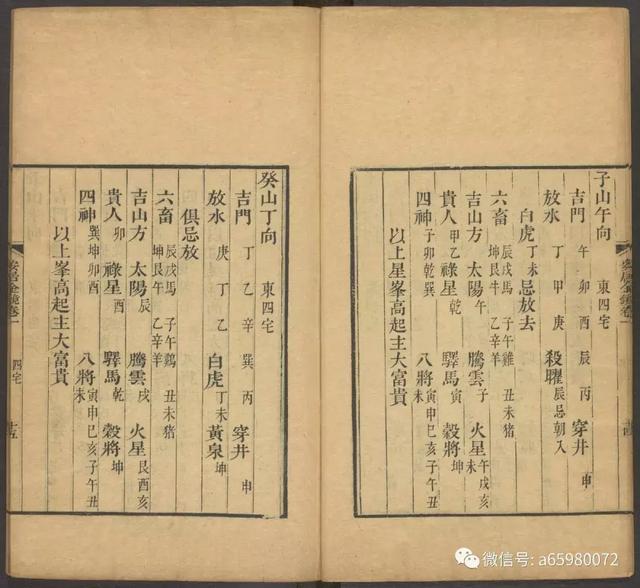 子山午向 東四宅
吉門 午 卯 酉 辰 丙 穿井 申
放水 丁 甲 庚 殺曜 辰忌朝入
白虎 丁未 忌放去
六畜 辰戌馬 子午雞 丑未猪 坤艮牛 乙辛羊
吉山方 太陽 午 騰雲 子 火星 午戌亥未
貴人 甲乙 祿星 乾 驛馬 寅 穀將 坤
四神 子卯乾巽 八將 寅申巳亥子午丑未
以上星峯高起主大富貴
安居金鏡卷一
癸山丁向 東四宅
吉門 丁 乙 辛 巽 丙 穿井 申
放水 庚 丁 乙 白虎 丁未 黃泉 坤
俱忌放
六畜 辰戌馬 子午鷄 丑未猪 坤艮牛 乙辛羊
吉山方 太陽 辰 騰雲 戌 火星 艮酉亥
貴人 卯 祿星 酉 驛馬 乾 穀將 坤
四神 巽坤卯酉 八將 寅申巳亥子午丑未
以上峯高起主大富貴
安居金鏡卷一 四宅 十五
微信号: a65980072